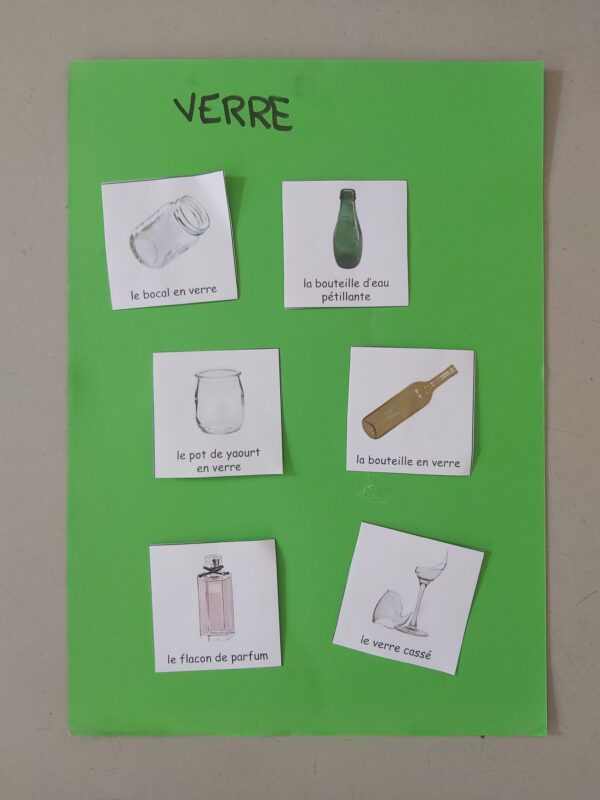 VERRE
le bocal en verre
la bouteille d'eau
pétillante
le pot de yaourt
en verre
la bouteille en verre
le flacon de parfum
le verre cassé